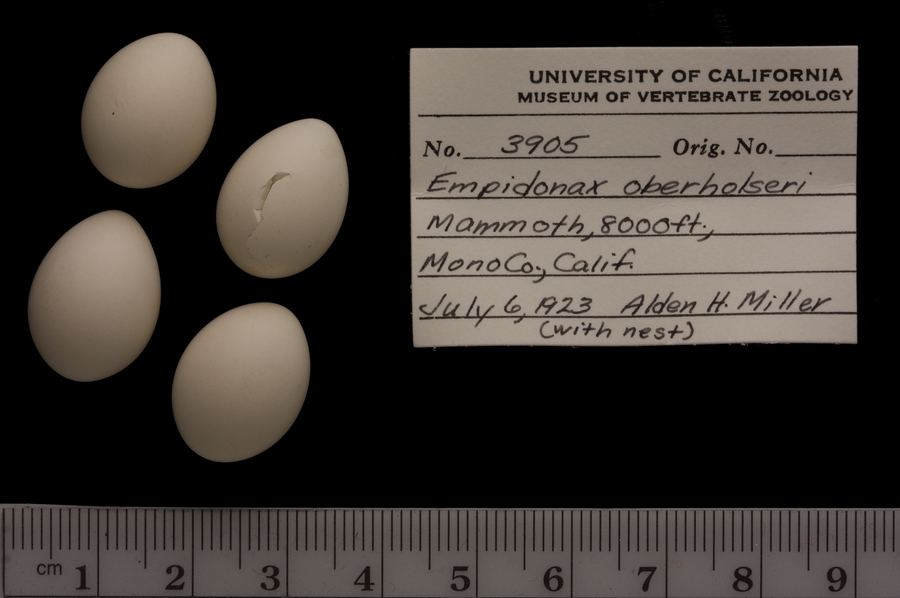 UNIVERSITY OF CALIFORNIA
MUSEUM OF VERTEBRATE ZOOLOGY
No. 3905 Orig. No.
Empidonax oberholseri
Mammoth, 8000ft.,
Mono Co., Calif.
July 6, 1923 Alden H. Miller
(with nest)
cm 1 2 3 4 5 6 7 8 9